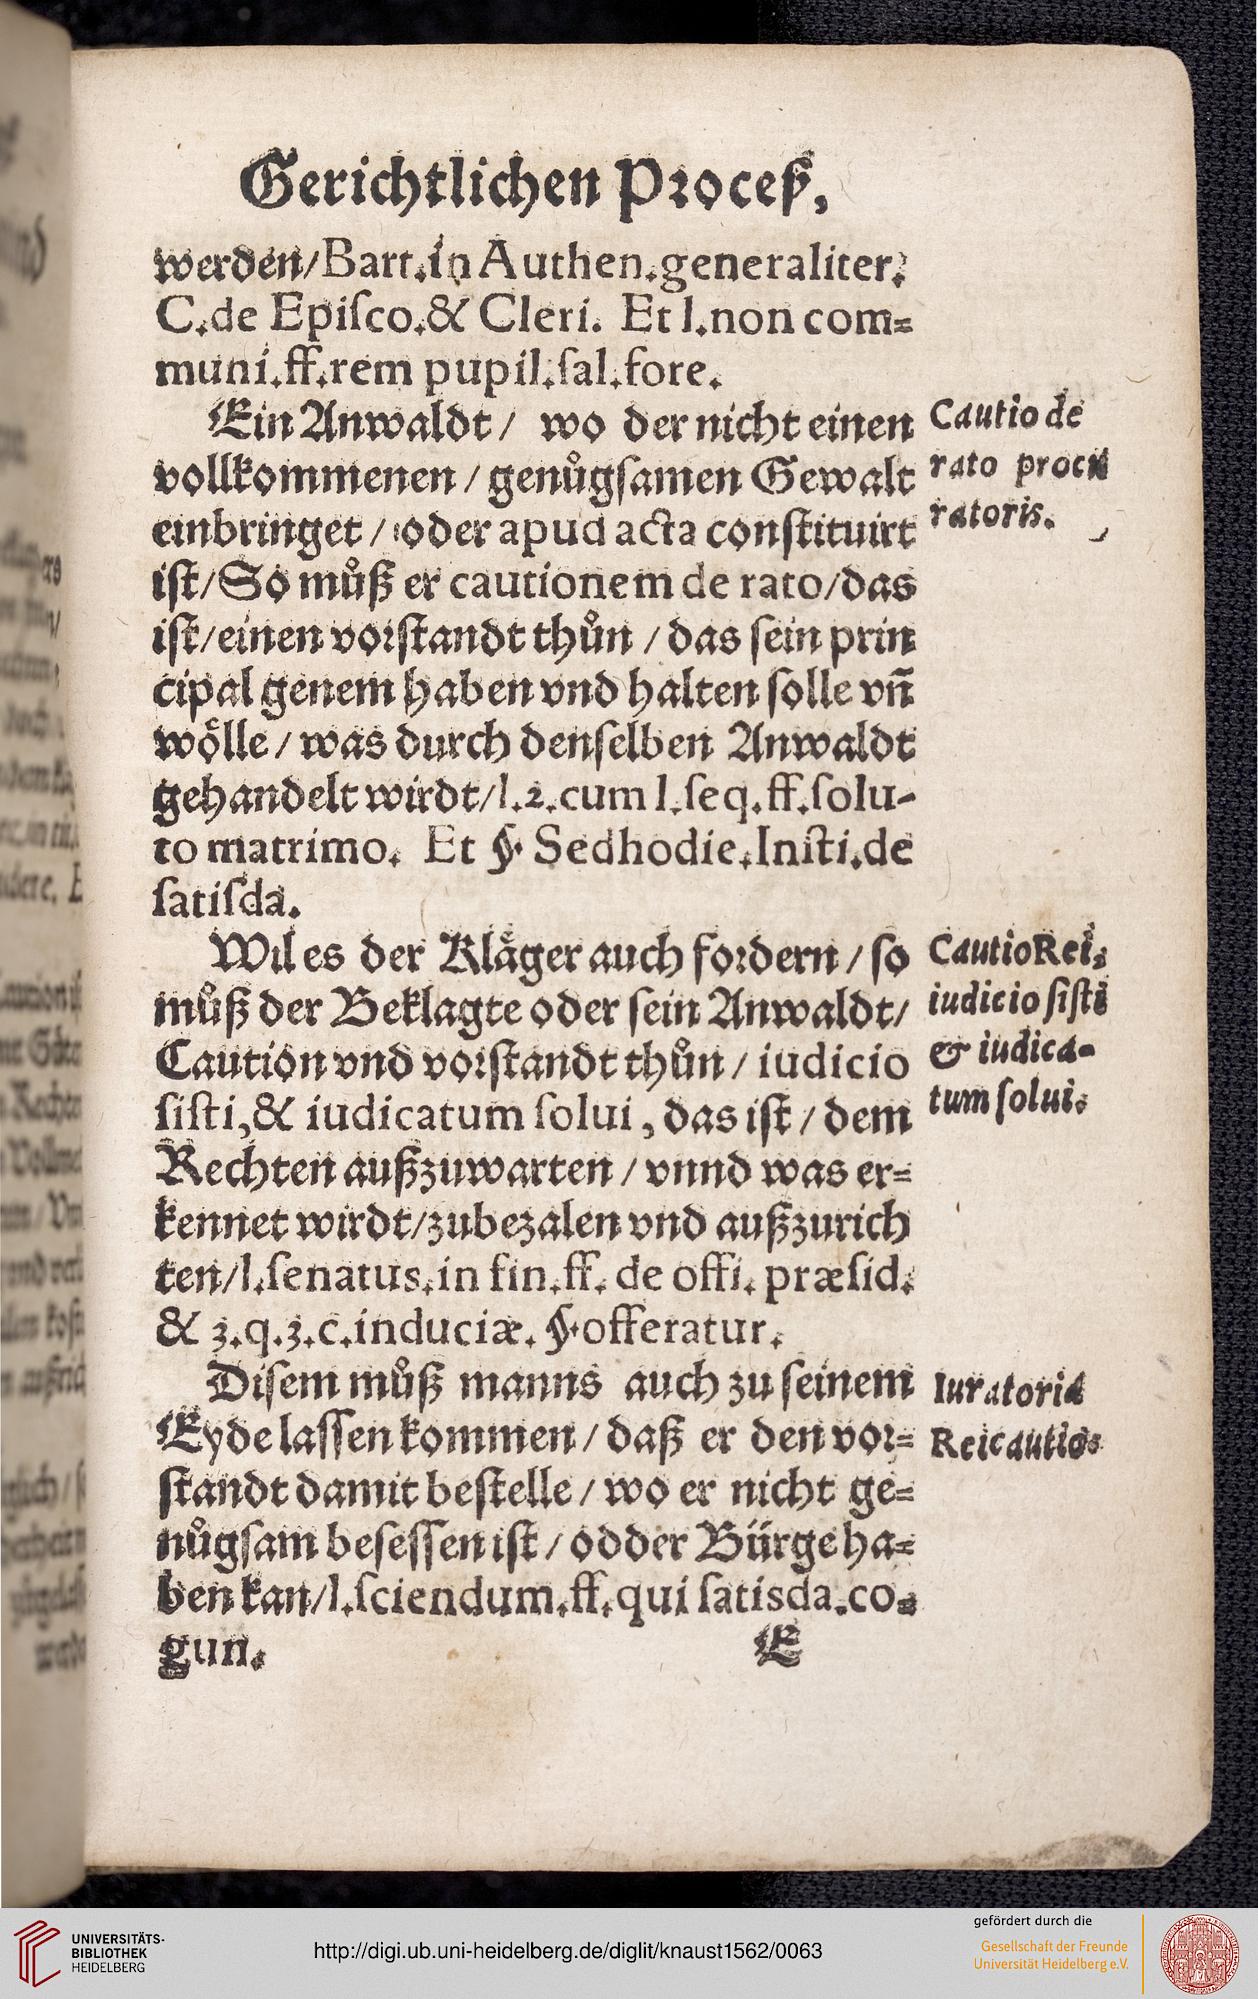 Gerichtlichen Proceß,
werden/Bart.in Authen.generaliter.
C.de Epiſco.& Cleri. Et l.non com⸗
muni.ff.rem pupil.ſal.fore.
Ein Anwaldt / wo der nicht einen
vollkommenen / genuͦgſamen Gewalt
einbringet / oder apud acta conſtituirt
iſt/So muͦß er cautionem de rato/das
iſt/einen vorſtandt thuͦn / das ſein prin
cipal genem haben vnd halten ſolle vn̄
woͤlle / was durch denſelben Anwaldt
gehandelt wirdt/l.2.cum l.ſeq.ff.ſolu-
to matrimo. Et §. Sedhodie.Inſti.de
ſatiſda.
Cautio de
rato procu
ratoris.
Wil es der Klaͤger auch fordern / ſo
muͦß der Beklagte oder ſein Anwaldt/
Caution vnd vorſtandt thuͦn / iudicio
ſiſti,& iudicatum ſolui, das iſt / dem
Rechten außzuwarten / vnnd was er⸗
kennet wirdt/zubezalen vnd außzurich
ten/l.ſenatus.in fin.ff. de offi. præſid.
& 3.q.3.c.induciæ. §.offeratur.
Cautio Rei,
iudicio ſiſti
& iudica-
tum ſolui.
Diſem muͦß manns auch zu ſeinem
Eyde laſſen kommen / daß er den vor⸗
ſtandt damit beſtelle / wo er nicht ge⸗
nuͦgſam beſeſſen iſt / odder Bürge ha⸗
ben kan/l.ſciendum.ff.qui ſatisda.co⸗
gun.
E
Iuratoria
Rei cautio.
UNIVERSITÄTS-
BIBLIOTHEK
HEIDELBERG
http://digi.ub.uni-heidelberg.de/diglit/knaust1562/0063
gefördert durch die
Gesellschaft der Freunde
Universität Heidelberg e.V.